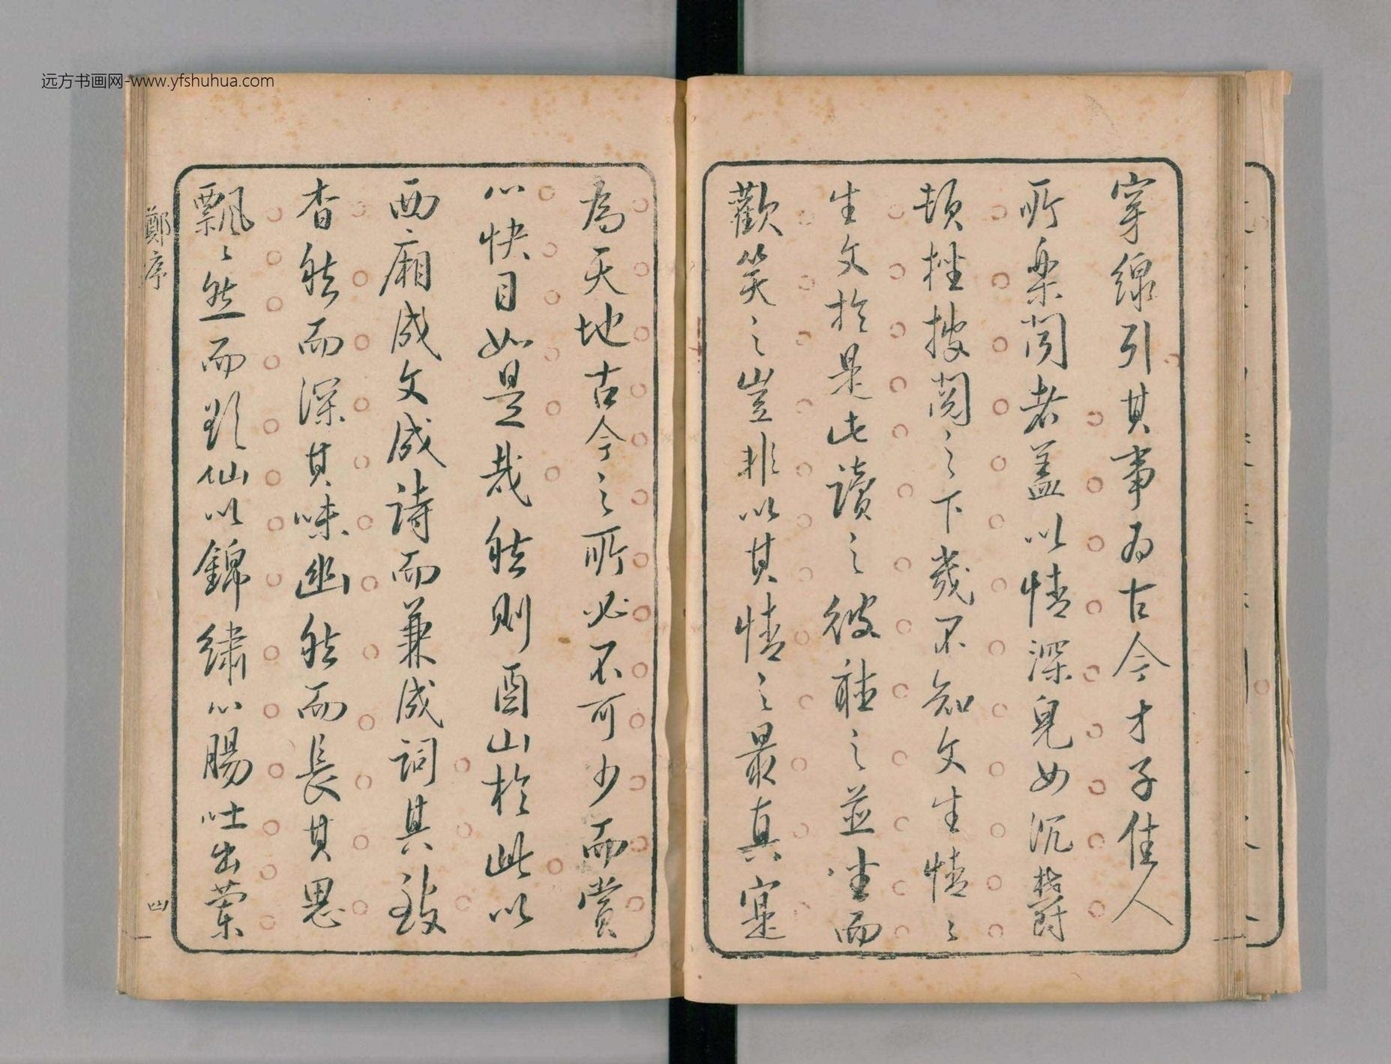 远方书画网-www.yfshuhua.com
穿線引其事為古今才子佳人
所樂聞者蓋以情深兒女沉鬱
頓挫披閱之下幾不知文生情〻
生文於是此讀之彼聽之並坐而
歡笑之豈非以其情之最真寔
為天地古今之所必不可少而賞
心快目如是哉然則酉山於此以
西廂成文成詩而兼成詞其致
杳然而深其味幽然而長其思
飄〻然而欲仙以錦繡心腸吐出蘭
鄭序
四